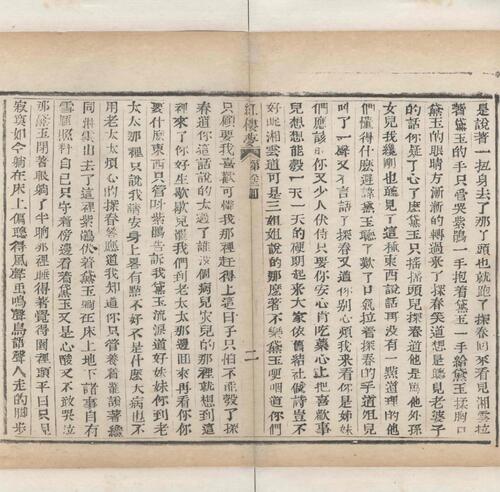 是說著一扭身去了那丫頭也就跑了探春囘來看見湘雲拉
著黛玉的手只管哭紫鵑一手抱著黛玉一手給黛玉揉胸口
黛玉的眼睛方漸漸的轉過來了探春笑道想是聽見老婆子
的話你疑了心了麽黛玉只搖搖頭兒探春道他是罵他外孫
女兒我纔剛也聽見了這種東西說話再沒有一點道理的他
們懂得什麽避諱黛玉聽了歎了口氣拉著探春的手道姐兒
叫了一聲又不言語了探春又道你別心煩我來看你是姊妹
們應該的你又少人伏侍只要你安心肯吃藥心上把喜歡事
兒想想能彀一天一天的硬朗起來大家依舊結社做詩豈不
好呢湘雲道可是三姐姐說的那麽著不樂黛玉哽咽道你們
紅樓夢 第八十三囘 二
只顧要我喜歡可憐我那裡趕得上這日子只怕不能彀了探
春道你這話說的太過了誰沒個病兒災兒的那裡就想到這
裡來了你好生歇歇兒罷我們到老太太那邊囘來再看你你
要什麽東西只管叫紫鵑告訴我黛玉流淚道好妹妹你到老
太太那裡只說我請安身上畧有點不好不是什麽大病也不
用老太太煩心的探春答應道我知道你只管養着罷說著纔
同湘雲出去了這裡紫鵑扶著黛玉躺在床上地下諸事自有
雪雁照料自己只守着傍邊看着黛玉又是心酸又不敢哭泣
那黛玉閉著眼躺了半晌那裡睡得著覺得園裡頭平日只見
寂寞如今躺在床上偏聽得風聲虫鳴聲鳥語聲人走的脚步